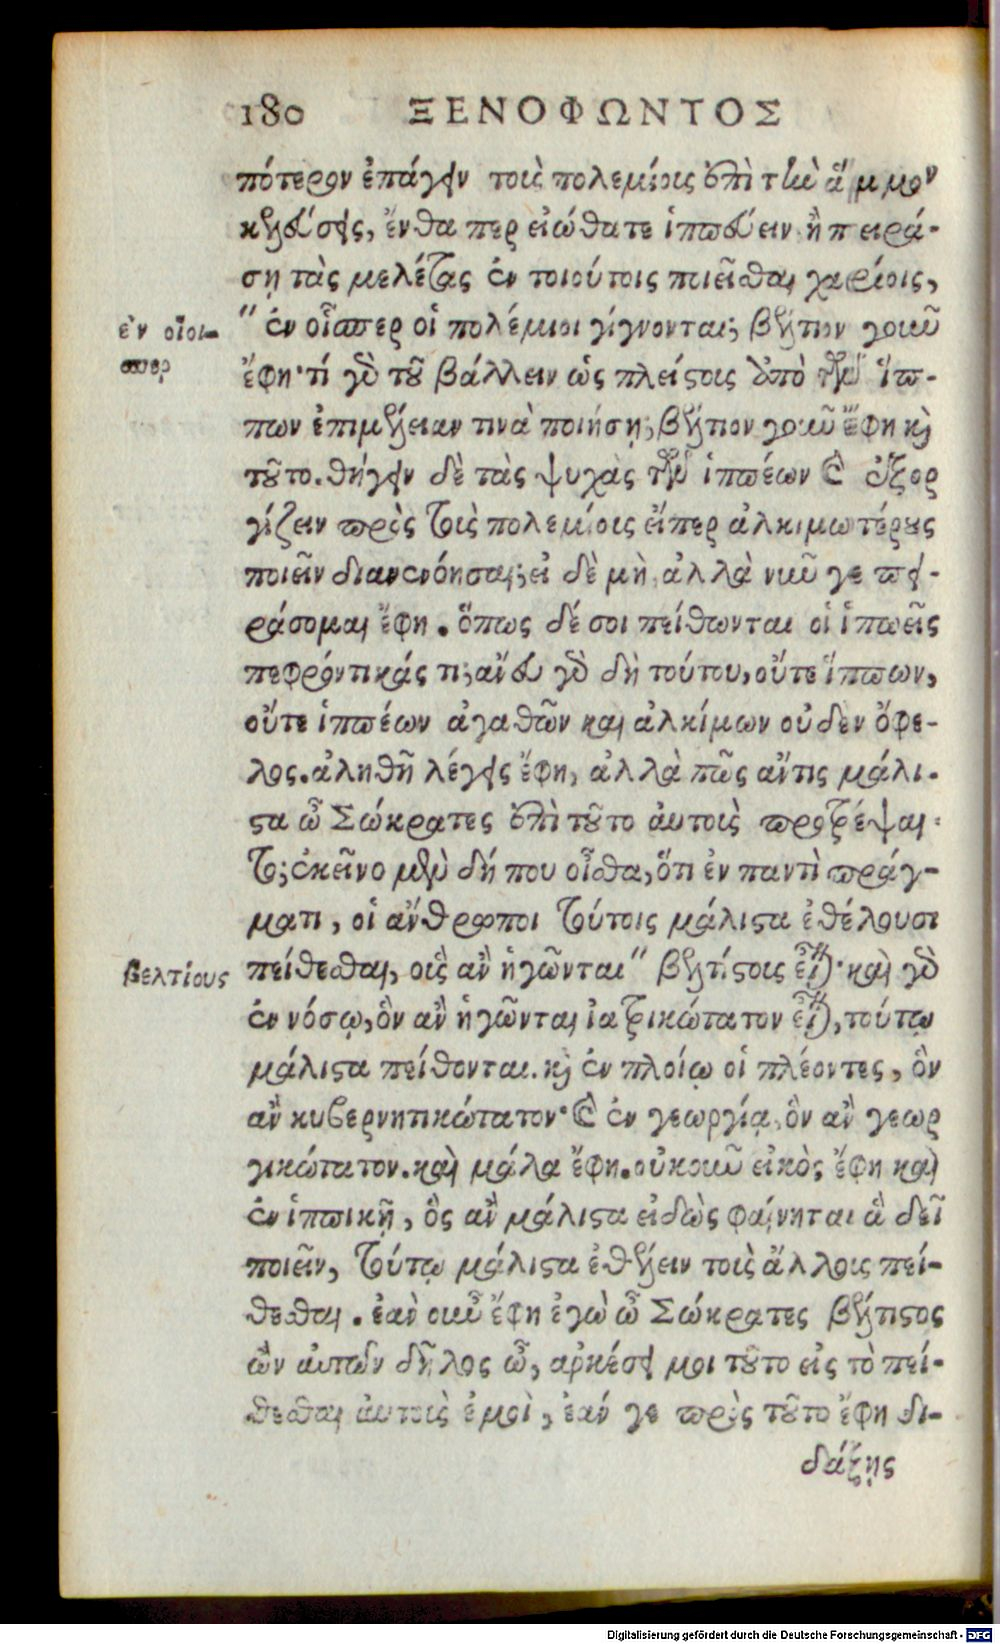 180 ΞΕΝΟΦΩΝΤΟΣ
πότερον ἐπάγειν τοὺς πολεμίους ἐπὶ τὴν ἄμμον
κελεύσεις, ἔνθα περ εἰώθατε ἱππεύειν ἢ πειρά-
ση τὰς μελέτας ἐν τοιούτοις ποιεῖσθαι χωρίοις,
ἐν οἷοι- " ἐν οἷσπερ οἱ πολέμιοι γίγνονται; βέλτιον γοιῦ
σπερ ἔφη· τί γὸ τοῦ βάλλειν ὡς πλείστους ἀπὸ τῶν ἵπ-
πων ἐπιμέλειαν τινὰ ποιήση; βέλτιον γοιῦ ἔφη καὶ
τοῦτο. θήγειν δὲ τὰς ψυχὰς τῶν ἱππέων καὶ ἐξορ
γίζειν πρὸς τοὺς πολεμίους εἴπερ ἀλκιμωτέρους
ποιεῖν διανενόησαι; εἰ δὲ μὴ ἀλλὰ νιῦ γε πει-
ράσομαι ἔφη. ὅπως δέ σοι πείθωνται οἱ ἱππεῖς
πεφρόντικάς τι; ἄνευ γὸ δὴ τούτου, οὔτε ἵππων,
οὔτε ἱππέων ἀγαθῶν καὶ ἀλκίμων οὐδὲν ὄφε-
λος. ἀληθῆ λέγεις ἔφη, ἀλλὰ πῶς ἄν τις μάλι-
στα ὦ Σώκρατες ἐπὶ τοῦτο αὐτοὺς προτρέψαι-
το; ἐκεῖνο μὲν δή που οἶσθα, ὅτι ἐν παντὶ πράγ-
ματι, οἱ ἄνθρωποι τούτοις μάλιστα ἐθέλουσι
βελτίους πείθεσθαι, οὓς ἂν ἡγῶνται " βελτίστους εἶναι· καὶ γὸ
ἐν νόσῳ, ὃν ἂν ἡγῶνται ἰατρικώτατον εἶναι, τούτῳ
μάλιστα πείθονται. καὶ ἐν πλοίῳ οἱ πλέοντες, ὃν
ἂν κυβερνητικώτατον· καὶ ἐν γεωργίᾳ, ὃν ἂν γεωρ
γικώτατον. καὶ μάλα ἔφη. οὐκοιῦ εἰκὸς ἔφη καὶ
ἐν ἱππικῇ, ὃς ἂν μάλιστα εἰδὼς φαίνηται ἃ δεῖ
ποιεῖν, τούτῳ μάλιστα ἐθέλειν τοὺς ἄλλους πεί-
θεσθαι. ἐὰν οιῦ ἔφη ἐγὼ ὦ Σώκρατες βέλτιστος
ὢν αὐτῶν δῆλος ὦ, ἀρκέσει μοι τοῦτο εἰς τὸ πεί-
θεσθαι αὐτοὺς ἐμοὶ, ἐάν γε πρὸς τοῦτο ἔφη δι-
δάξῃς
Digitalisierung gefördert durch die Deutsche Forschungsgemeinschaft - DFG